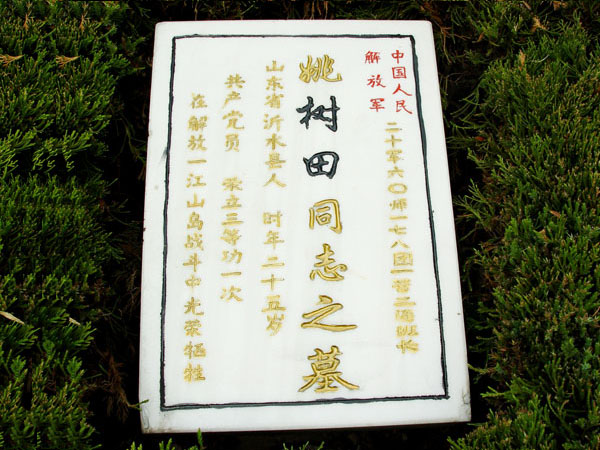 中国人民
解放军
二十军六〇师一七八团一营二连班长
姚树田同志之墓
山东省沂水县人 时年二十五岁
共产党员 荣立三等功一次
在解放一江山岛战斗中光荣牺牲